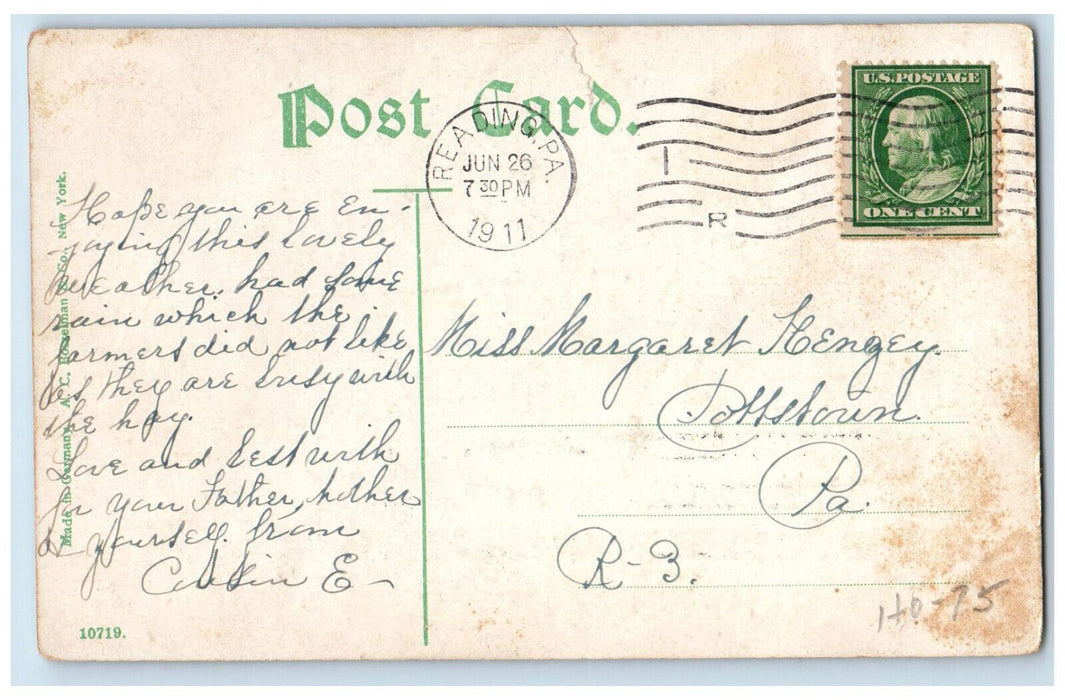 Post Card.
READING, PA.
JUN 26
7 30 PM
1911
I
R
U.S. POSTAGE
ONE CENT
Made in Germany. A. C. Bosselman & Co., New York.
Hope you are en-
joying this lovely
weather. had some
rain which the
farmers did not like
as they are busy with
the hay.
Love and best wish
for your Father, Mother
& yourself from
Cousin E-
Miss Margaret
Pottstown
Pa.
R-3.
10719.